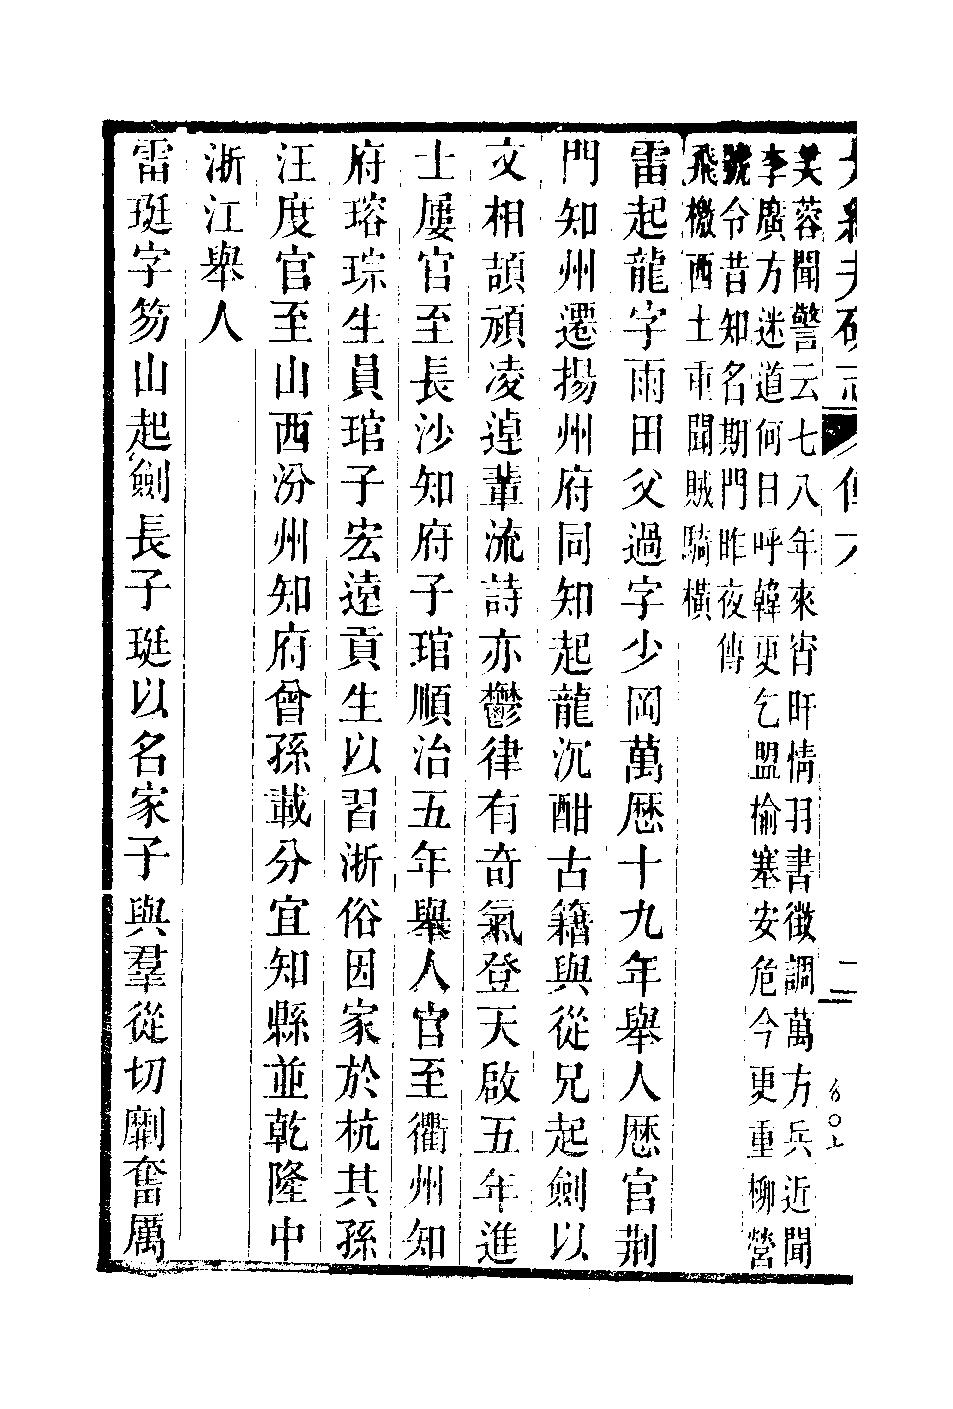 芙蓉聞警云七八年來宵旰情羽書徵調萬方兵近聞
李廣方迷道何日呼韓更乞盟榆塞安危今更重柳營
號令昔知名期門昨夜傳
飛檄西土重聞賊騎橫
雷起龍字雨田父過字少岡萬歷十九年舉人歷官荆
門知州遷揚州府同知起龍沉酣古籍與從兄起劍以
文相頡頏凌逴輩流詩亦鬱律有奇氣登天啟五年進
士屢官至長沙知府子琯順治五年舉人官至衢州知
府瑢琮生員琯子宏遠貢生以習浙俗因家於杭其孫
汪度官至山西汾州知府曾孫載分宜知縣並乾隆中
浙江舉人
雷珽字笏山起劍長子珽以名家子與羣從切劘奮厲
二